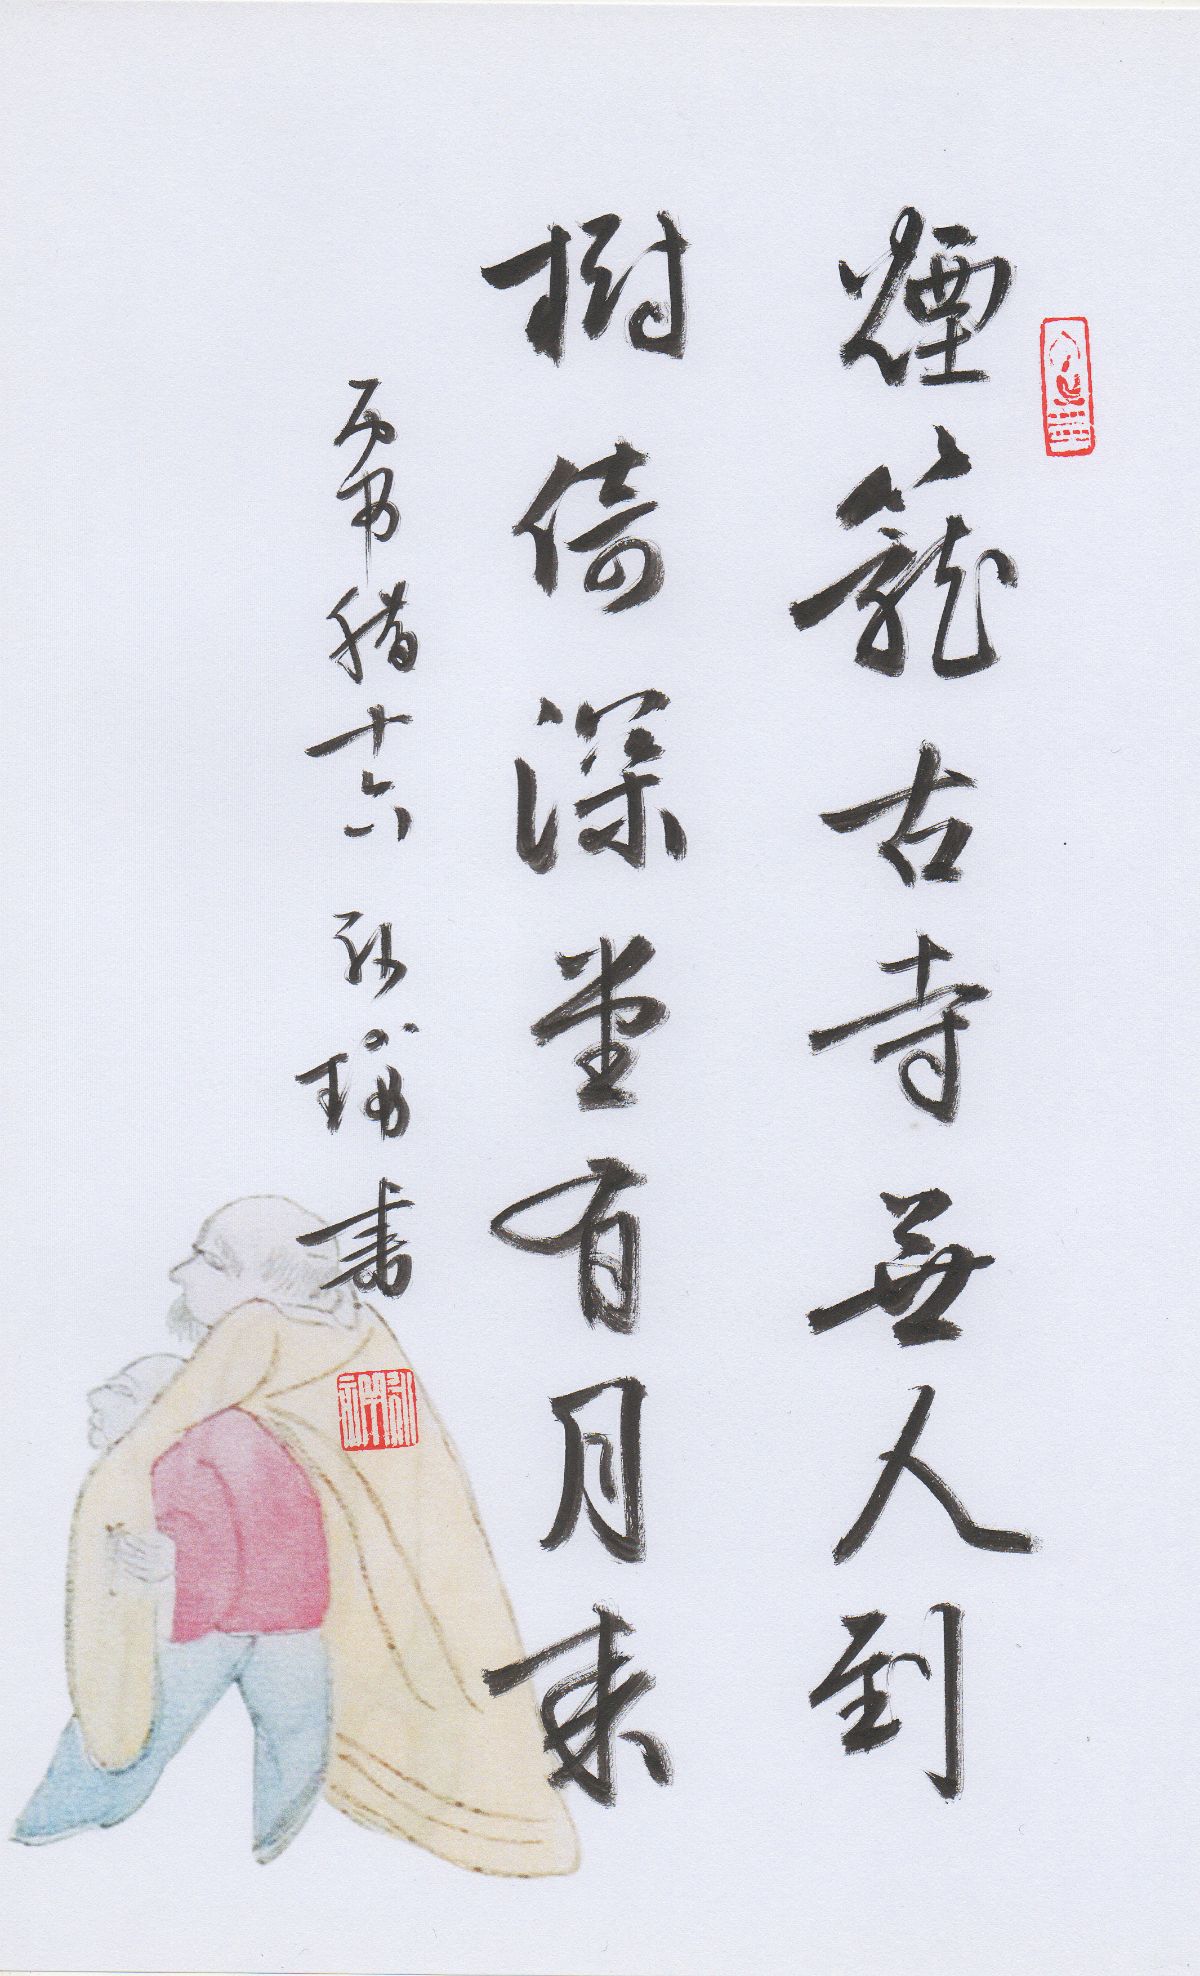 煙籠古寺無人到
樹倚深堂有月來
丙申腊十六 永璞書